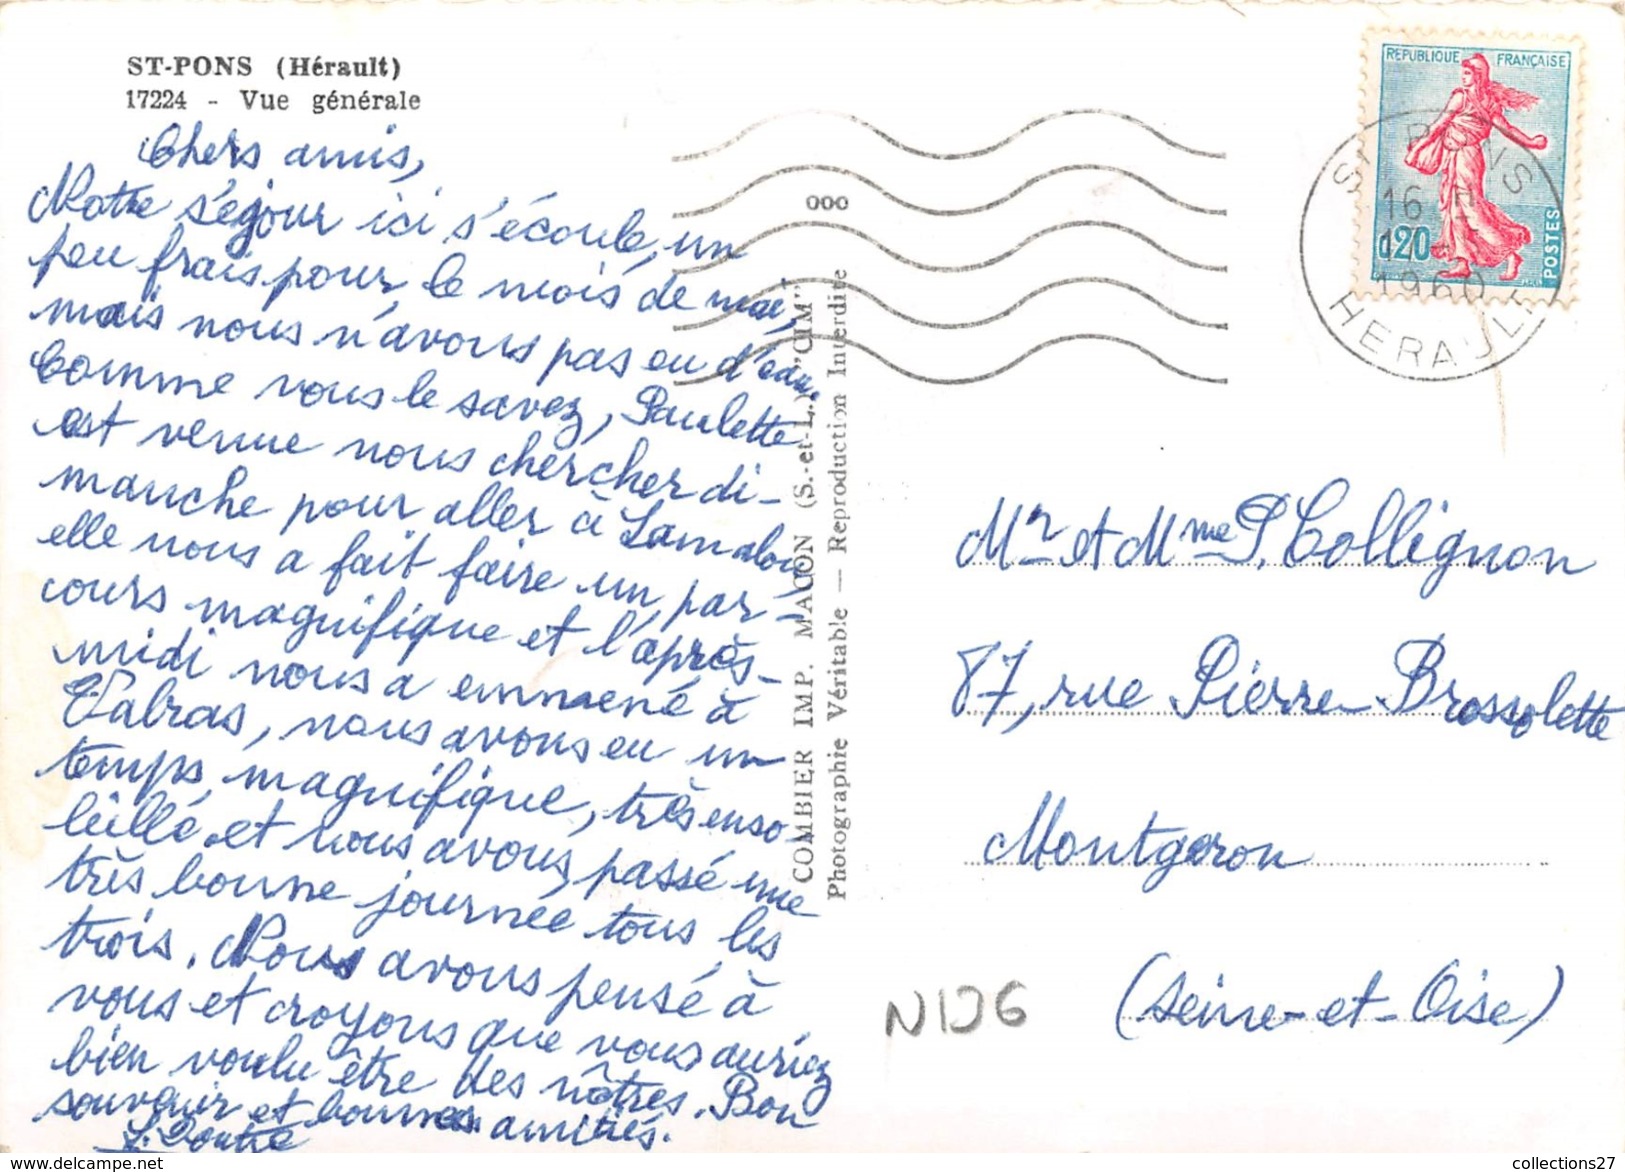 ST-PONS (Hérault)
17224 - Vue générale
Chers amis,
Notre séjour ici s'écoule, un
peu frais pour le mois de mai,
mais nous n'avons pas eu d'eau.
Comme vous le savez, Paulette
est venue nous chercher di-
manche pour aller à Lamalou
elle nous a fait faire un par-
cours magnifique et l'après-
midi nous a emmené à
Valras, nous avons eu un
temps magnifique, très enso-
leillé et nous avons passé une
très bonne journée tous les
trois. Nous avons pensé à
vous et croyons que vous auriez
bien voulu être des nôtres. Bon
souvenir et bonnes amitiés.
COMBIER IMP. MACON (S.-et-L.) "CIM"
Photographie Véritable — Reproduction Interdite
000
REPUBLIQUE FRANÇAISE
0,20
POSTES
ST PONS
16 H
1960
HERAULT
Mr et Mme P. Collignon
87, rue Pierre Brossolette
Montgeron
(Seine-et-Oise)
N1J6
collections27